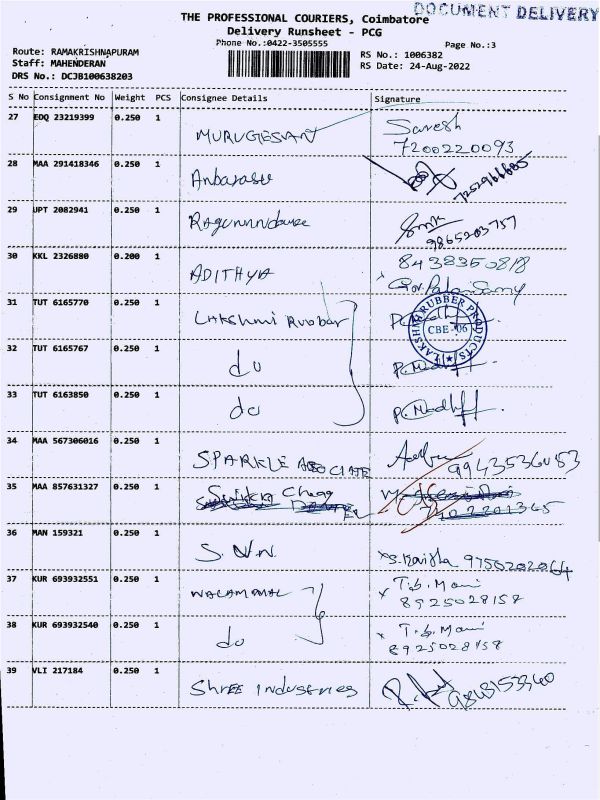 DOCUMENT DELIVERY
THE PROFESSIONAL COURIERS, Coimbatore
Delivery Runsheet - PCG
Phone No.:0422-3505555
Page No.:3
Route: RAMAKRISHNAPURAM
RS No.: 1006382
Staff: MAHENDERAN
RS Date: 24-Aug-2022
DRS No.: DCJB100638203
S No Consignment No Weight PCS Consignee Details Signature
27 EDQ 23219399 0.250 1 MURUGESAN Saresh
7200220093
28 MAA 291418346 0.250 1 Anbarasu
29 JPT 2082941 0.250 1
9865203757
30 KKL 2326880 0.200 1 ADITHYA 8438350818
31 TUT 6165770 0.250 1 Lakshmi Rubber
LAKSHMI RUBBER PRODUCTS
CBE-06
32 TUT 6165767 0.250 1 do
33 TUT 6163850 0.250 1 do
34 MAA 567306016 0.250 1 SPARKLE ASSOCIATE
9943536053
35 MAA 857631327 0.250 1
36 MAN 159321 0.250 1 S.N.N. 9750202064
37 KUR 693932551 0.250 1 x T.S. Mani
8925028158
38 KUR 693932540 0.250 1 do x T.S. Mani
8925028158
39 VLI 217184 0.250 1 Shree Industries